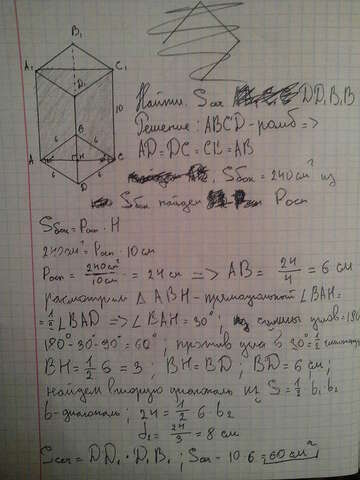 B₁
A₁
C₁
D₁
10
B
6
6
A
H
C
6
6
D
Найти: Sсеч DD₁B₁B
Решение: ABCD - ромб =>
AD = DC = CB = AB
Sбок = 240 см² из
Sбок найдем Pосн
Sбок = Pосн · H
240 см² = Pосн · 10 см
Pосн = 240 см² / 10 см = 24 см => AB = 24/4 = 6 см
рассмотрим △ ABH - прямоугольный ∠BAH =
= 1/2 ∠BAD => ∠BAH = 30°, из суммы углов = 180
180° - 30° - 90° = 60°; против угла в 30° = 1/2 гипотенузы
BH = 1/2 6 = 3; BH = BD; BD = 6 см;
найдем вторую диагональ из S = 1/2 b₁·b₂
b - диагональ; 24 = 1/2 6·b₂
d₂ = 24/3 = 8 см
Sсеч = DD₁ · D₁B₁; Sсеч - 10·6 = 60 см²